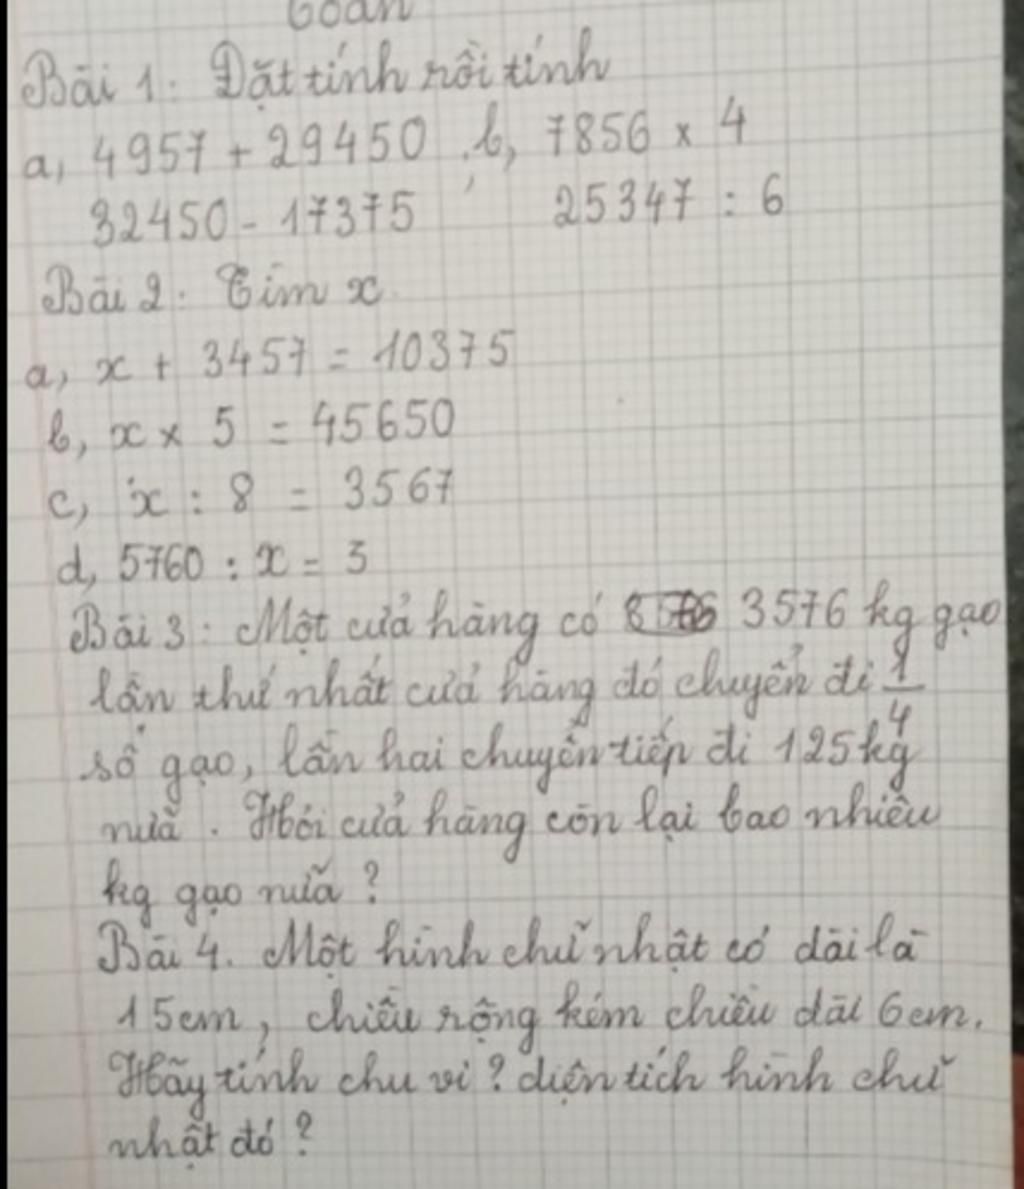 Toán
Bài 1: Đặt tính rồi tính
a, 4957 + 29450 b, 7856 x 4
32450 - 17375 25347 : 6
Bài 2: Tìm x
a, x + 3457 = 10375
b, x x 5 = 45650
c, x : 8 = 3567
d, 5760 : x = 3
Bài 3: Một cửa hàng có 3576 kg gạo
lần thứ nhất cửa hàng đó chuyển đi 1/4
số gạo, lần hai chuyển tiếp đi 125kg
nữa. Hỏi cửa hàng còn lại bao nhiêu
kg gạo nữa?
Bài 4. Một hình chữ nhật có dài là
15cm, chiều rộng kém chiều dài 6cm.
Hãy tính chu vi? diện tích hình chữ
nhật đó?